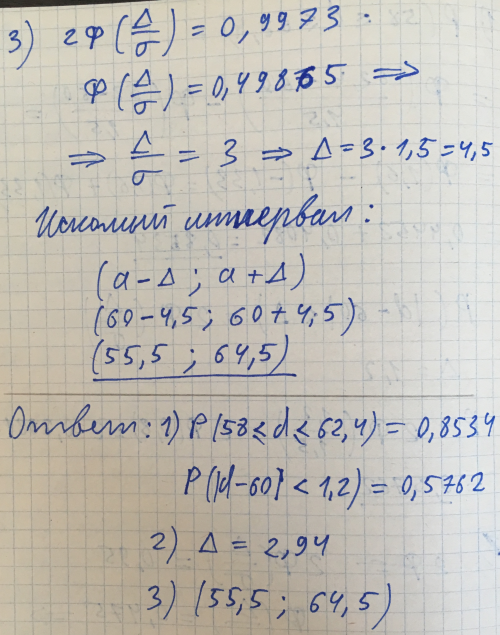 3) 2Ф(Δ/σ) = 0,9973.
Ф(Δ/σ) = 0,49865 ⟹
⟹ Δ/σ = 3 ⟹ Δ = 3 · 1,5 = 4,5
Искомый интервал:
(a − Δ ; a + Δ)
(60 − 4,5 ; 60 + 4,5)
(55,5 ; 64,5)
Ответ: 1) P(58 ≤ d ≤ 62,4) = 0,8534
P(|d−60| < 1,2) = 0,5762
2) Δ = 2,94
3) (55,5 ; 64,5)